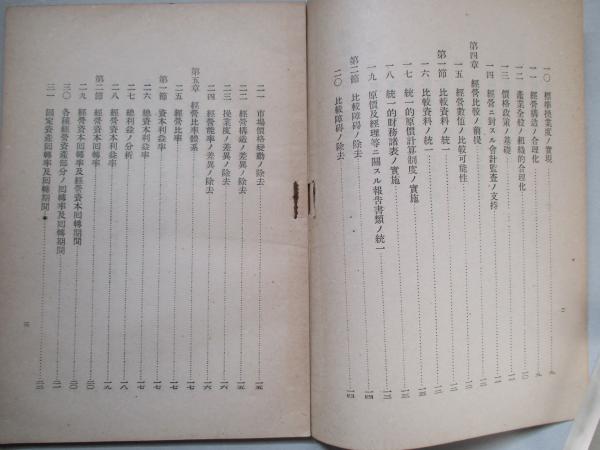 一〇 標準操業度ノ實現……九
一一 經營構造ノ合理化……九
一二 產業全般ノ組織的合理化……一〇
一三 價格政策ノ基礎
一四 經營ニ對スル會計監査ノ支持
第四章 經營比較ノ前提
一五 經營數値ノ比較可能性
第一節 比較資料ノ統一
一六 比較資料ノ統一
一七 統一的原價計算制度ノ實施
一八 統一的財務諸表ノ實施
一九 原價及經理等ニ關スル報告書類ノ統一……一四
第二節 比較障碍ノ除去
二〇 比較障碍ノ除去……一四
二一 市場價格變動ノ除去……一五
二二 經營構造ノ差異ノ除去……一五
二三 操業度ノ差異ノ除去……一六
二四 經營能率ノ差異ノ除去……一六
第五章 經營比率體系……一七
二五 經營比率……一七
第一節 資本利益率……一七
二六 總資本利益率……一七
二七 總利益ノ分析……一八
二八 資本利益率……一八
第二節 經營資本回轉率……一九
二九 經營資本回轉率及經營資本回轉期間……二〇
三〇 各種經營資產部分ノ回轉率及回轉期間……二一
三一 固定資產回轉率及回轉期間……二二